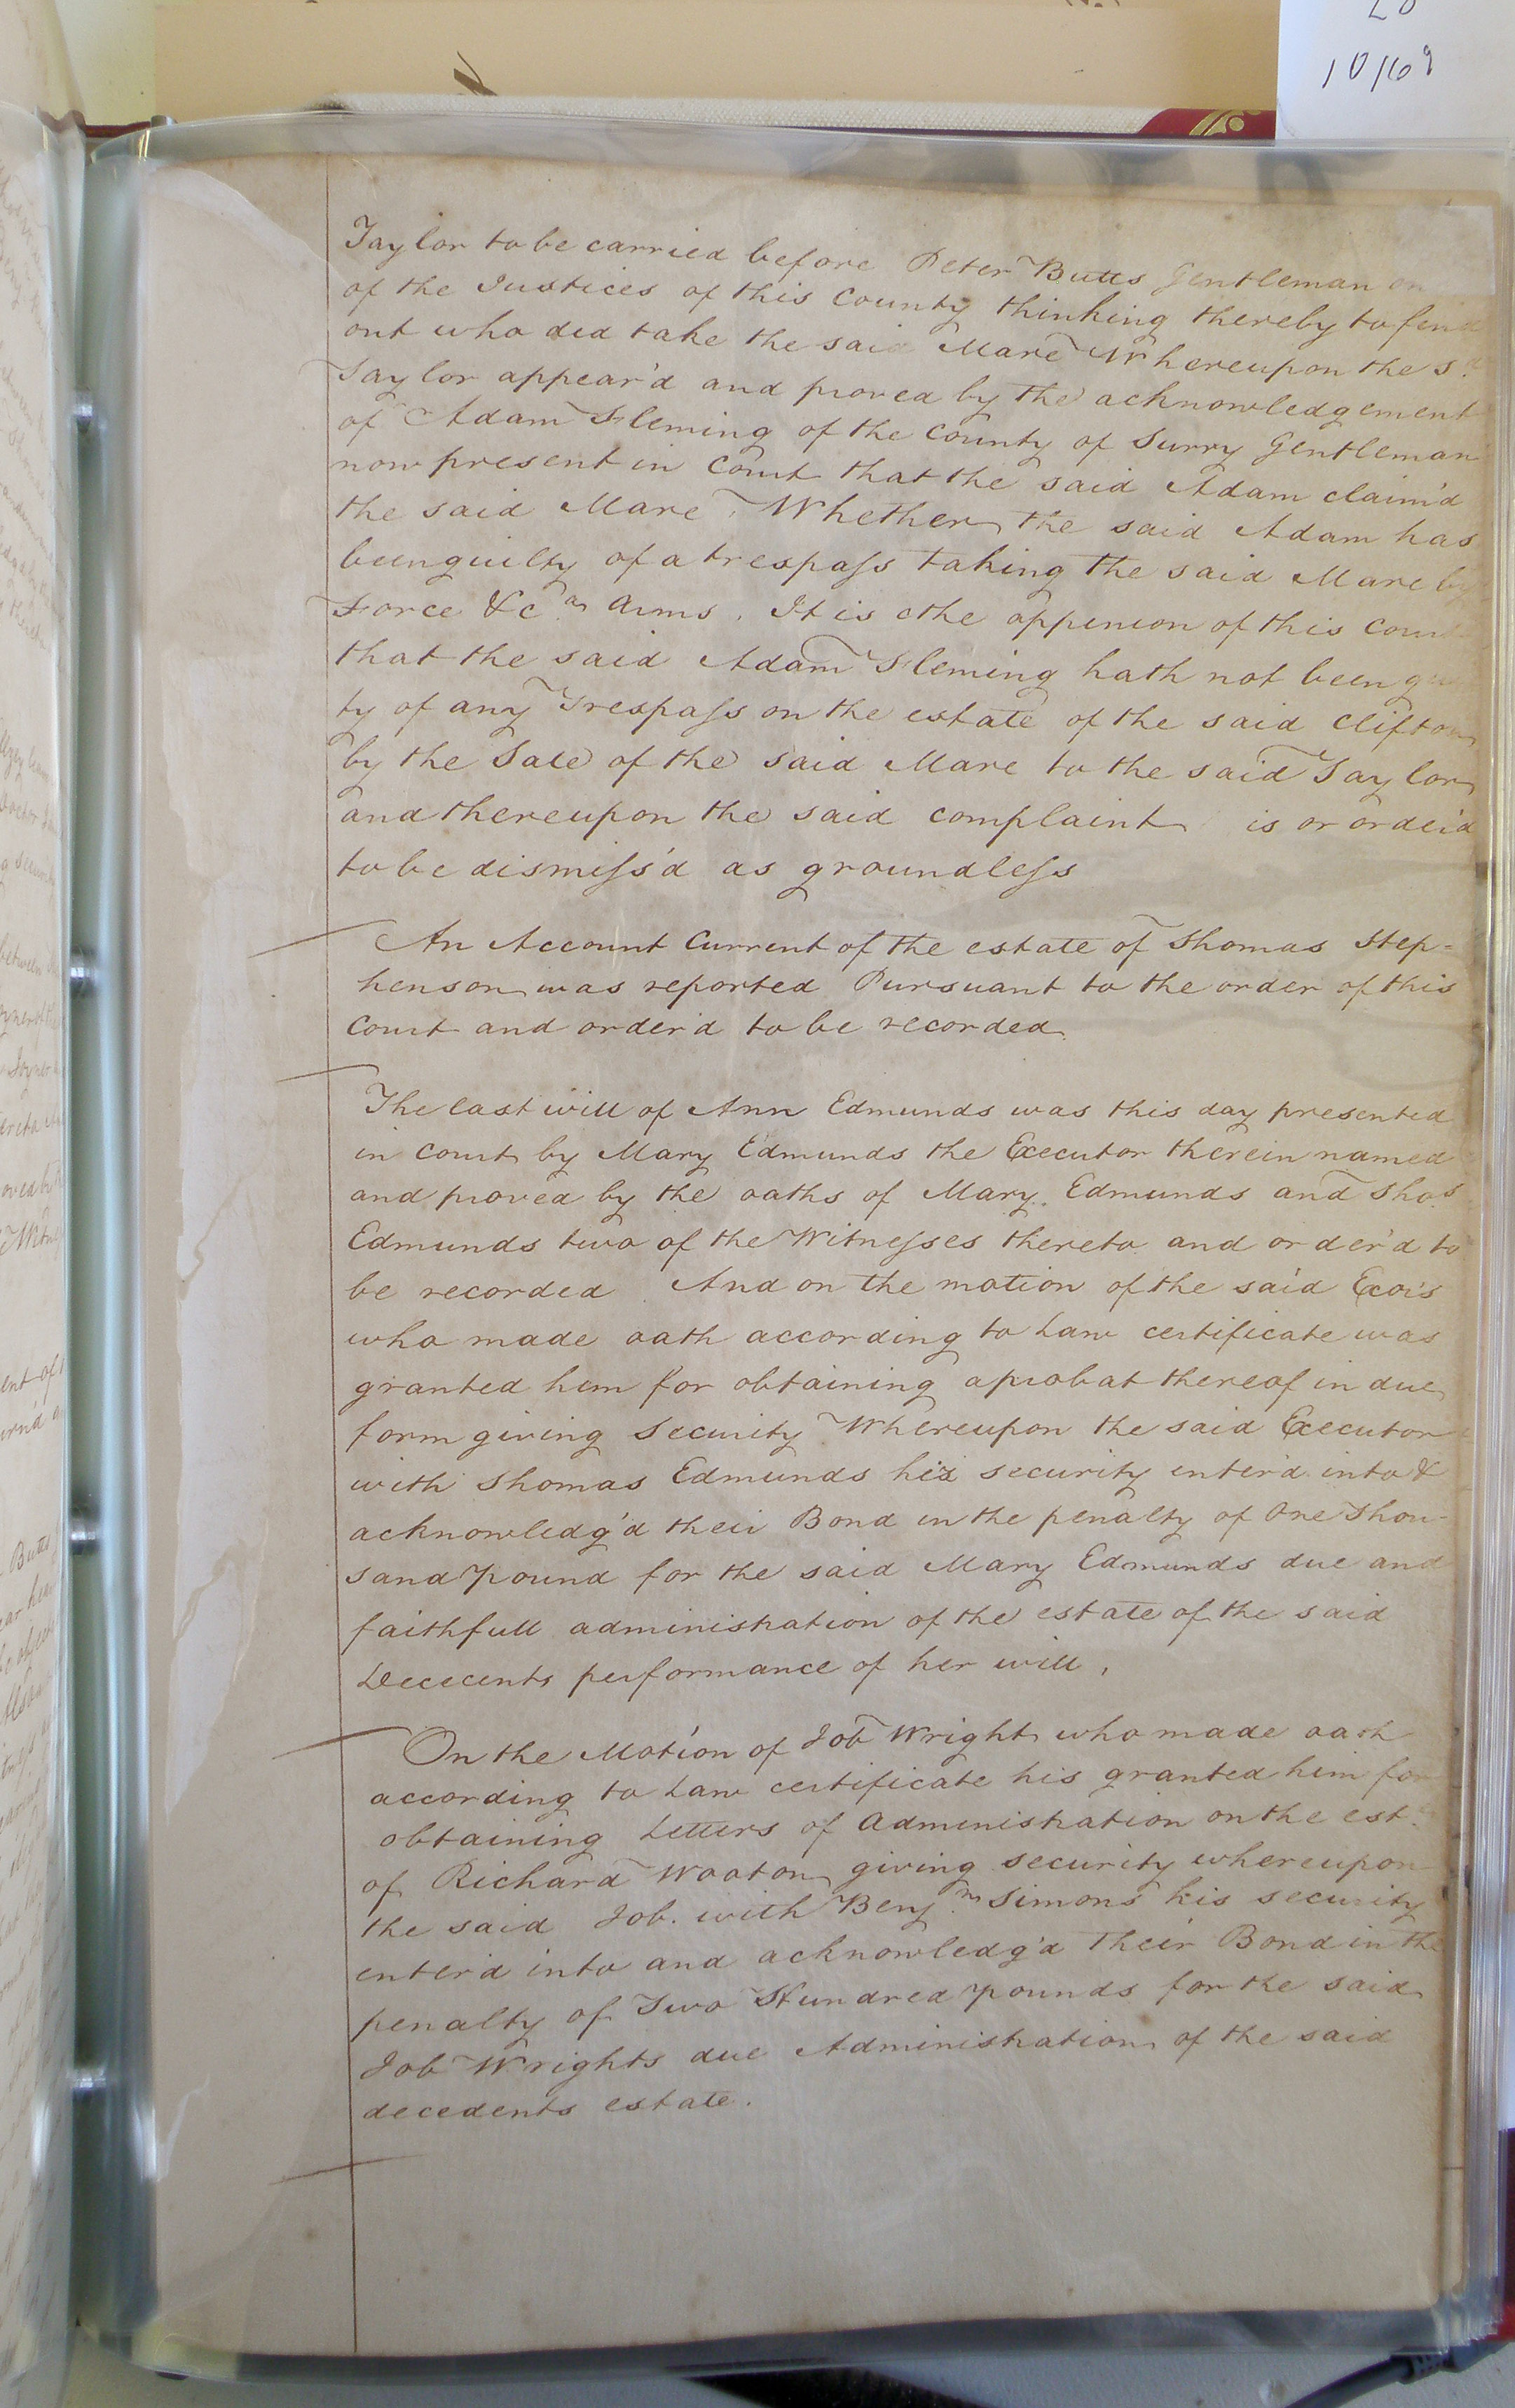 10/109
Taylor to be carried before Peter Butts Gentleman on
of the Justices of this County thinking thereby to find
out who did take the said Mare Whereupon the sd
Taylor appear'd and proved by the acknowledgement
of Adam Fleming of the County of Surry Gentleman
now present in Court that the said Adam claim'd
the said Mare, Whether the said Adam has
been guilty of a trespass taking the said Mare by
Force &ca arms. It is the oppinion of this Court
that the said Adam Fleming hath not been gu
ty of any Trespass on the estate of the said Clifton
by the Sale of the said Mare to the said Taylor
and thereupon the said complaint is or order'd
to be dismiss'd as groundless
An Account Current of the estate of Thomas Step=
henson was reported Pursuant to the order of this
Court and order'd to be recorded
The last will of Ann Edmunds was this day presented
in Court by Mary Edmunds the Executor therein named
and proved by the oaths of Mary Edmunds and Thos
Edmunds two of the Witnesses thereto and order'd to
be recorded And on the motion of the said Exors
who made oath according to Law certificate was
granted hem for obtaining a probat thereof in due
form giving Security Whereupon the said Executor
with Thomas Edmunds his security enter'd into &
acknowledg'd their Bond in the penalty of One Thou-
sand pound for the said Mary Edmunds due and
faithfull administration of the estate of the said
Dececents performance of her will,
On the Motion of Job Wright who made oath
according to Law certificate his granted him for
obtaining Letters of Administration on the est.
of Richard Wooton giving security whereupon
the said Job. with Benj.m Simons his security
enter'd into and acknowledg'd their Bond in the
penalty of Two Hundred pounds for the said
Job Wrights due Administration of the said
decedents estate.